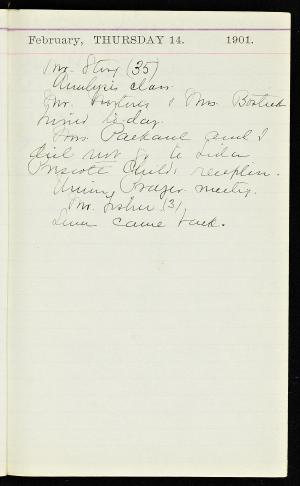 February, THURSDAY 14. 1901.
Mr. (35)
Analysis class.
Mr. & Mrs. Bostick
today.
Mrs. Packard and I
did not go to Lida
Prescott Child's reception.
Union Prayer meeting.
Mr. Fisher (3)
Lena came back.